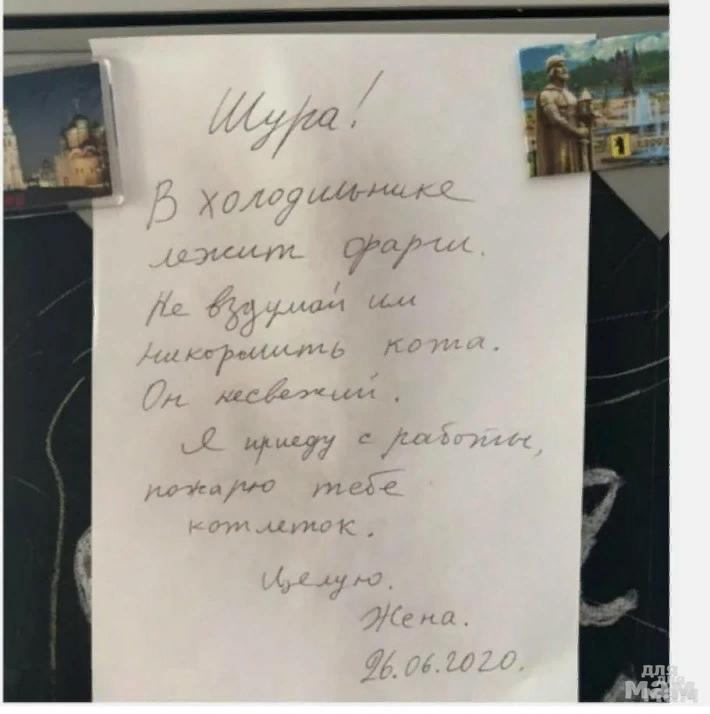 Шура!
В холодильнике
лежит фарш.
Не вздумай им
накормить кота.
Он несвежий.
Я приеду с работы,
пожарю тебе
котлеток.
Целую.
Жена.
26.06.2020.
для
МАМ